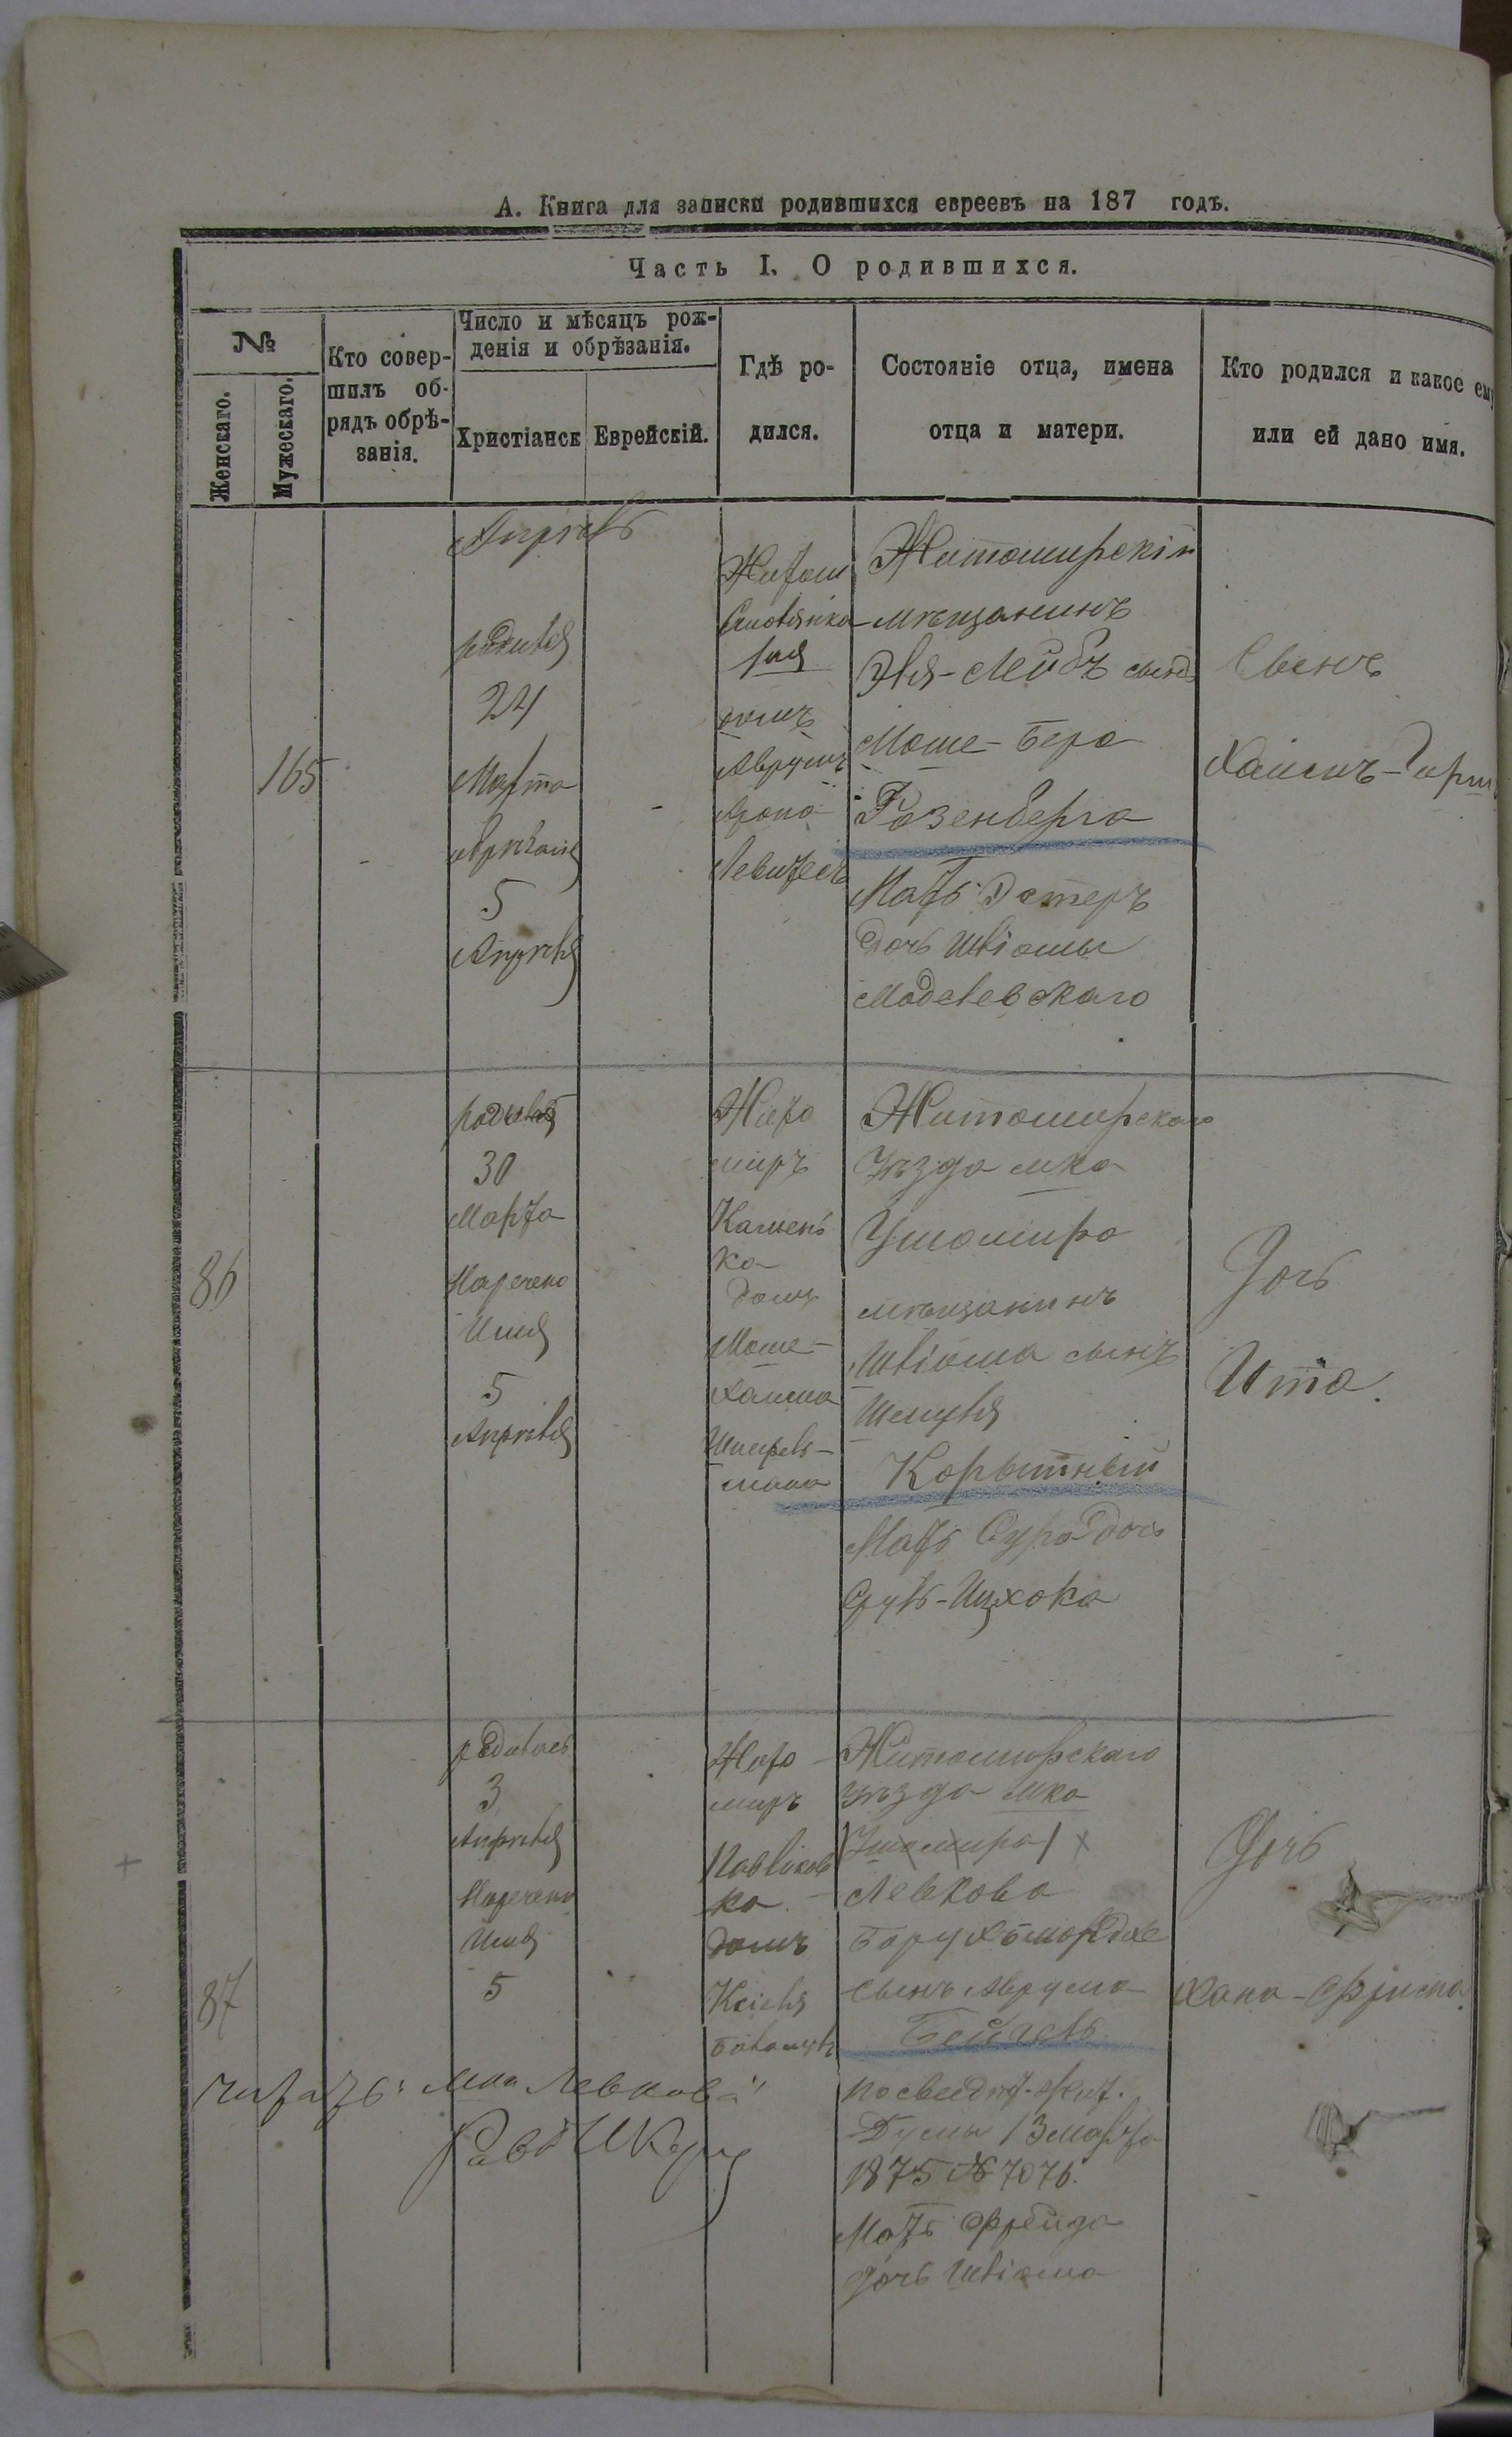 А. Книга для записки родившихся евреевъ на 187 годъ.
Часть I. О родившихся.
№
Женскаго.
Мужескаго.
Кто совер-
шилъ об-
рядъ обрѣ-
занія.
Число и мѣсяцъ рож-
денія и обрѣзанія.
Христіанск
Еврейскій.
Гдѣ ро-
дился.
Состояніе отца, имена
отца и матери.
Кто родился и какое ему
или ей дано имя.
Апрѣль
165
родился
24
Марта
обрѣзанъ
5
Апрѣля
Житом
домъ
Аврумъ
Арона
Житомирскій
мѣщанинъ
Эля-Лейбъ сынъ
Моше-Бера
Розенберга
Мать Эстеръ
дочь Шліомы
Моделевскаго
Сынъ
Хаимъ-Герш
86
30
Марта
Наречено
Имя
5
Апрѣля
Жито
миръ
Камен
ка
домъ
Моше-
Хаима
мана
Житомирскаго
уѣзда мка
Ушомира
мѣщанинъ
Шліома сынъ
Шмуля
Корытный
Мать Сура дочь
Сруль-Ицхока
Дочь
Ита.
87
родилась
3
Апрѣля
Наречено
Имя
5
Жито
миръ
Павликов
ка
домъ
Житомирскаго
уѣзда мка
Ушомира
Левкова
Борухъ Мордхе
Сынъ Аврума
Бейгель
по свид. Жит.
Думы 13 Марта
1875 № 7076.
Мать Фрейда
дочь Шліома
Дочь
Хана-Фрима
читать: „мка Левкова“